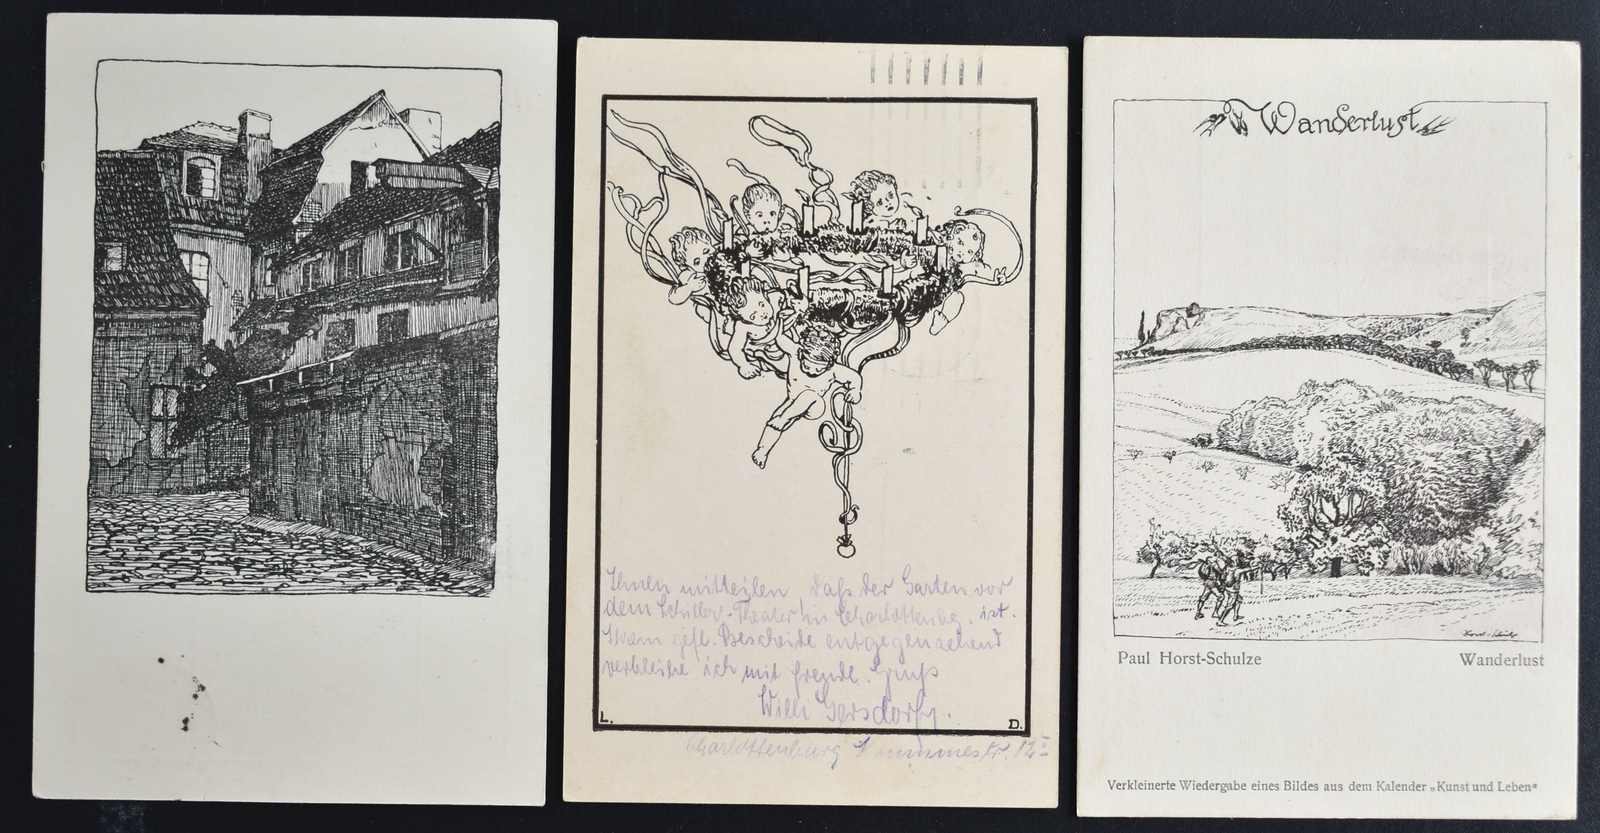 Ihnen mitteilen daß der Garten vor
dem Schiller-Theater in Charlottenbg. ist.
gefl. Bescheide entgegensehend
verbleibe ich mit freundl. Gruß
Willi Gersdorf
L. D.
Charlottenburg
Wanderlust
Paul Horst-Schulze Wanderlust
Verkleinerte Wiedergabe eines Bildes aus dem Kalender „Kunst und Leben"